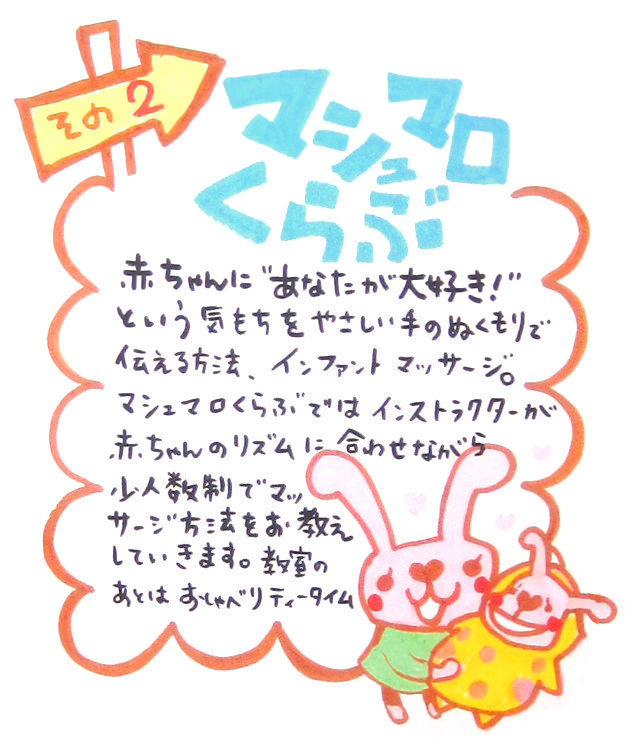 その2
マシュマロ
くらぶ
赤ちゃんに"あなたが大好き!"
という気もちをやさしい手のぬくもりで
伝える方法、インファントマッサージ。
マシュマロくらぶではインストラクターが
赤ちゃんのリズムに合わせながら
少人数制でマッ
サージ方法をお教え
していきます。教室の
あとはおしゃべりティータイム